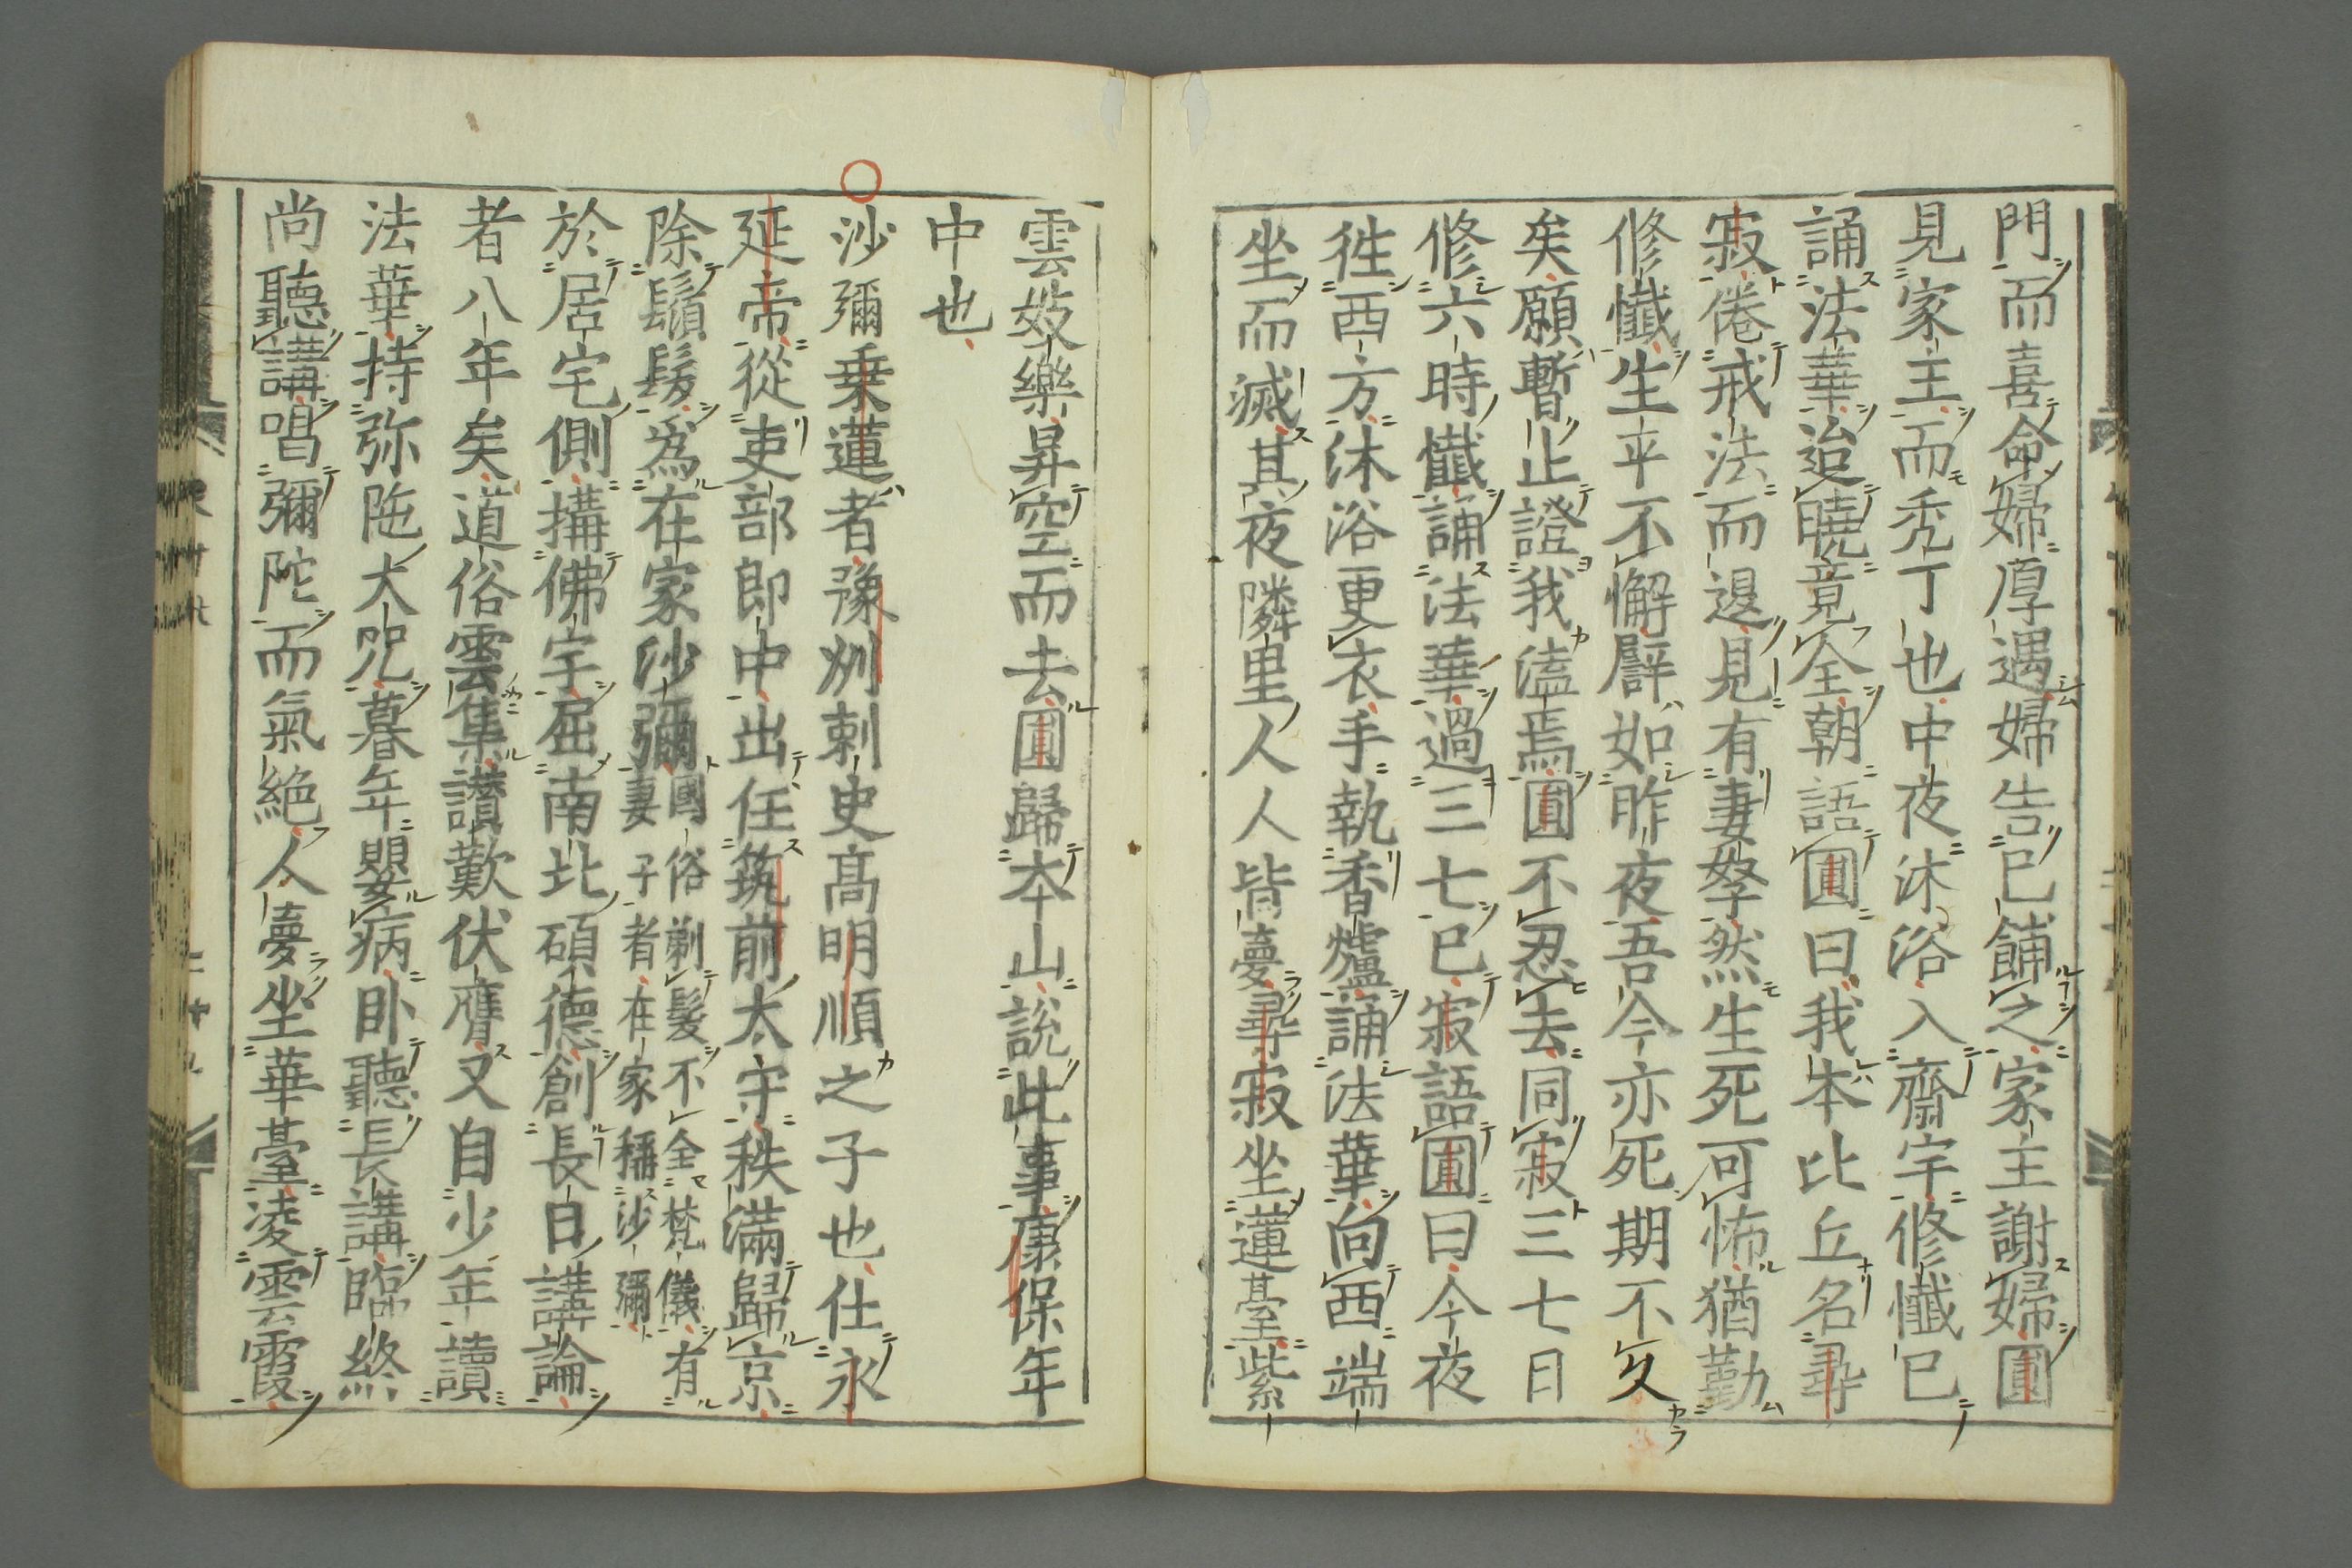 門而喜命婦厚遇婦告巳餔之家主謝婦圓
見家主而禿丁也中夜沐浴入齋宇修懺巳
誦法華迨曉竟全朝語圓曰我本比丘名尋
寂倦戒法而退見有妻孥然生死可怖猶勤
修懺生平不懈厤如昨夜吾今亦死期不久
矣願暫止證我溘焉圓不忍去同寂三七日
修六時懺誦法華過三七巳寂語圓曰今夜
徃西方沐浴更衣手執香爐誦法華向西端
坐而滅其夜隣里人人皆夢尋寂坐蓮臺紫
雲妓樂昇空而去圓歸本山說此事康保年
中也
沙彌乗蓮者豫州刺史髙明順之子也仕永
延帝從吏部郎中出任筑前太守秩滿歸京
除鬚髮爲在家沙彌國俗剃髮不全梵儀有妻子者在家稱沙彌
於居宅側搆佛宇屈南北碩德創長日講論
者八年矣道俗雲集讃歎伏膺又自少年讀
法華持弥陁大咒暮年嬰病卧聽長講臨終
尚聽講唱彌陀而氣絶人夢坐華臺凌雲霞